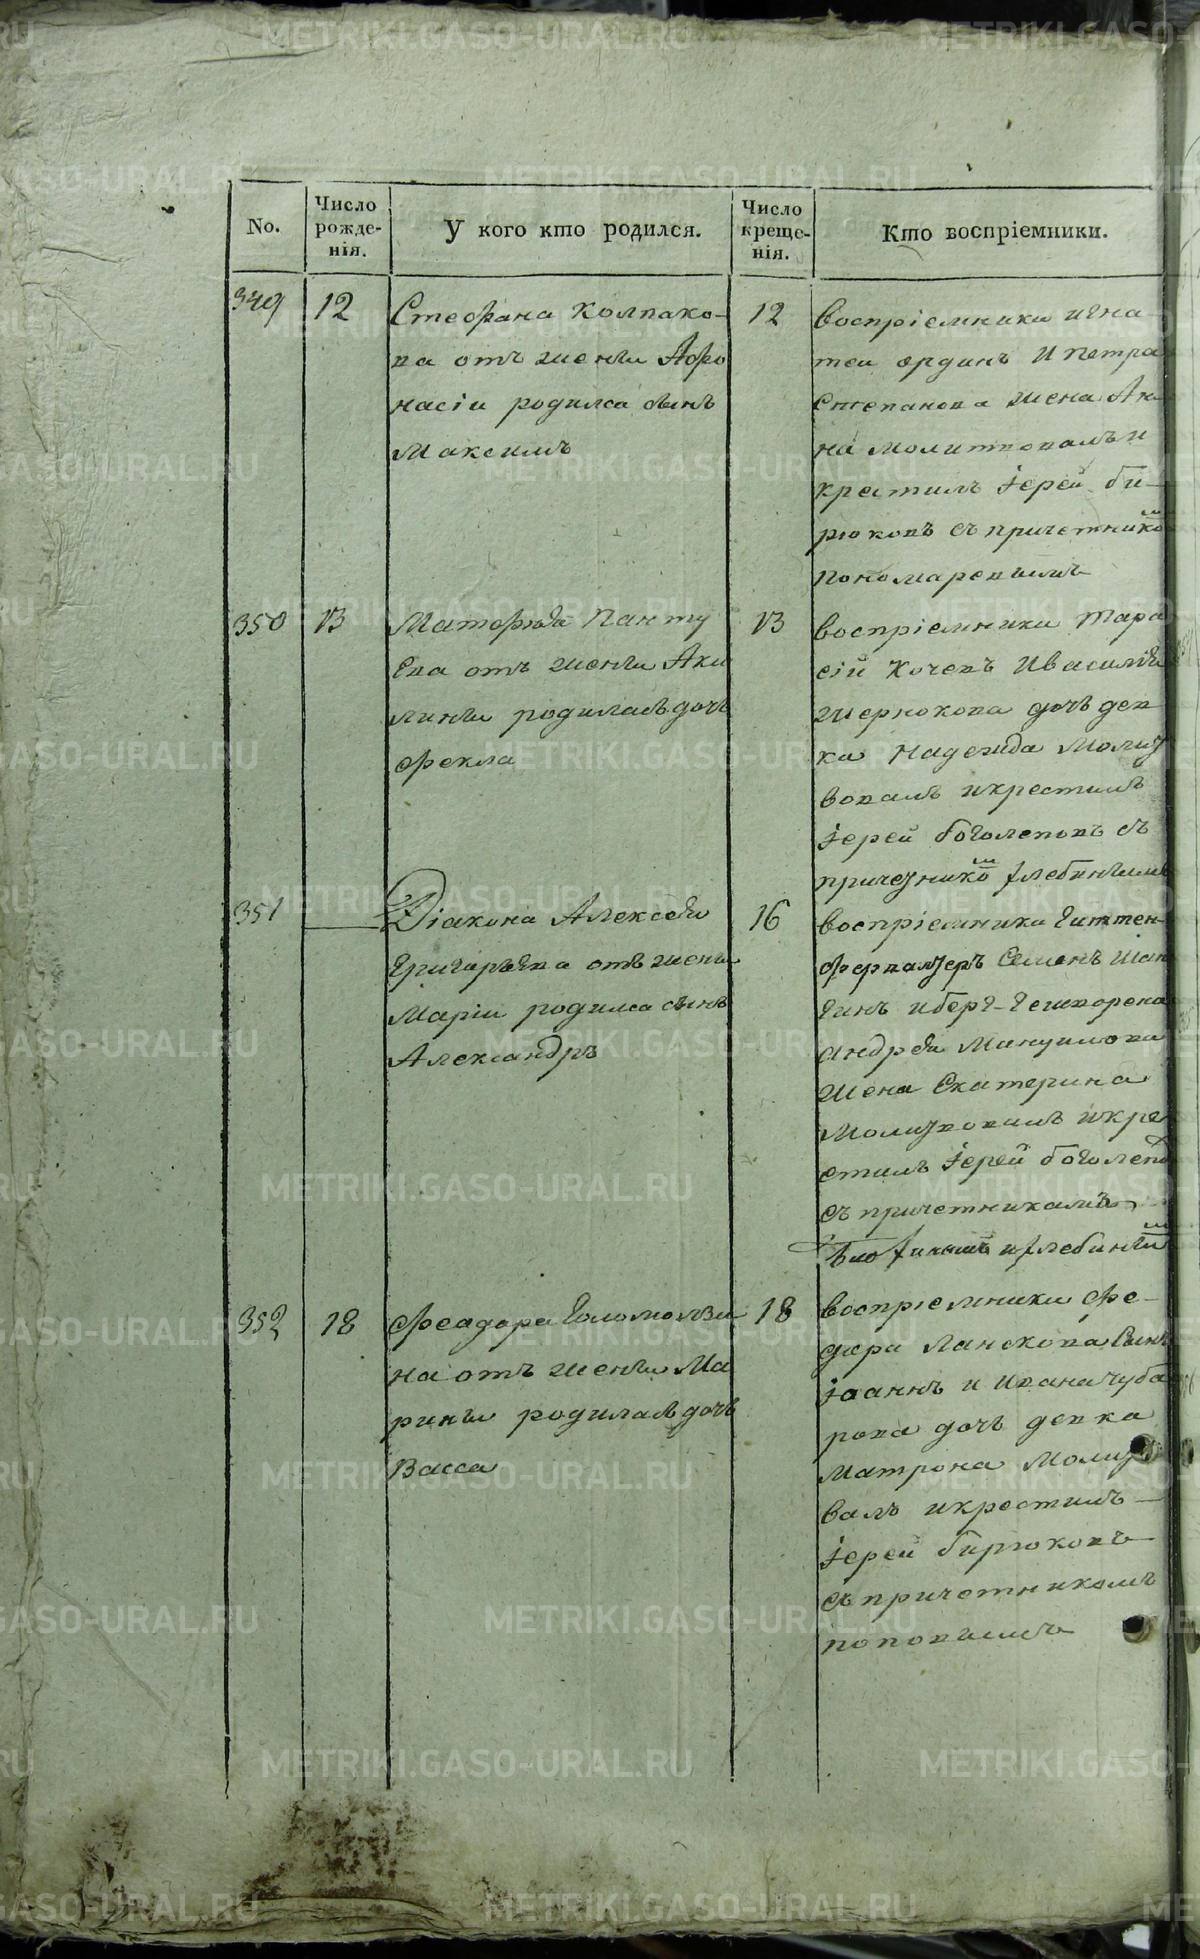 No.
Число рожде-нія.
У кого кто родился.
Число креще-нія.
Кто воспріемники.
349
12
Стефана Колпако-
ва отъ жены Афо
насіи родился сынъ
Максимъ
12
воспріемники игна
теи ординъ и петра
степанова жена Ан-
на молитвовалъ и
крестилъ іерей би-
рюковъ съ причетнико
пономаревымъ
350
13
Матфея Панту
ева отъ жены Аки
лины родилась дочь
фекла
13
воспріемники тара
сій Кочевъ и василія
жернокова дочь дев
ка надежда Молит
вовалъ и крестилъ
іерей боголеповъ съ
причетнико хлебинымъ
351
Діакона Алексея
Григорьева отъ жены
Маріи родился сынъ
Александръ
16
воспріемники Гиттен-
ферваltеръ Семенъ Шан
гинъ и берг-гешворена
андрея Мануилова
жена Екатерина
Молитвовалъ и кре
стилъ іерей боголепо
съ причетниками
и хлебинымъ
352
18
феадора Голомолзи
на отъ жены Ма
рины родилась дочь
Васса
18
воспріемники фе-
дора Ланскова сынъ
іоаннъ и ивана чуба
рова дочь девка
Матрона Молит
валъ и крестилъ
іерей бирюковъ
съ причетникомъ
поповымъ